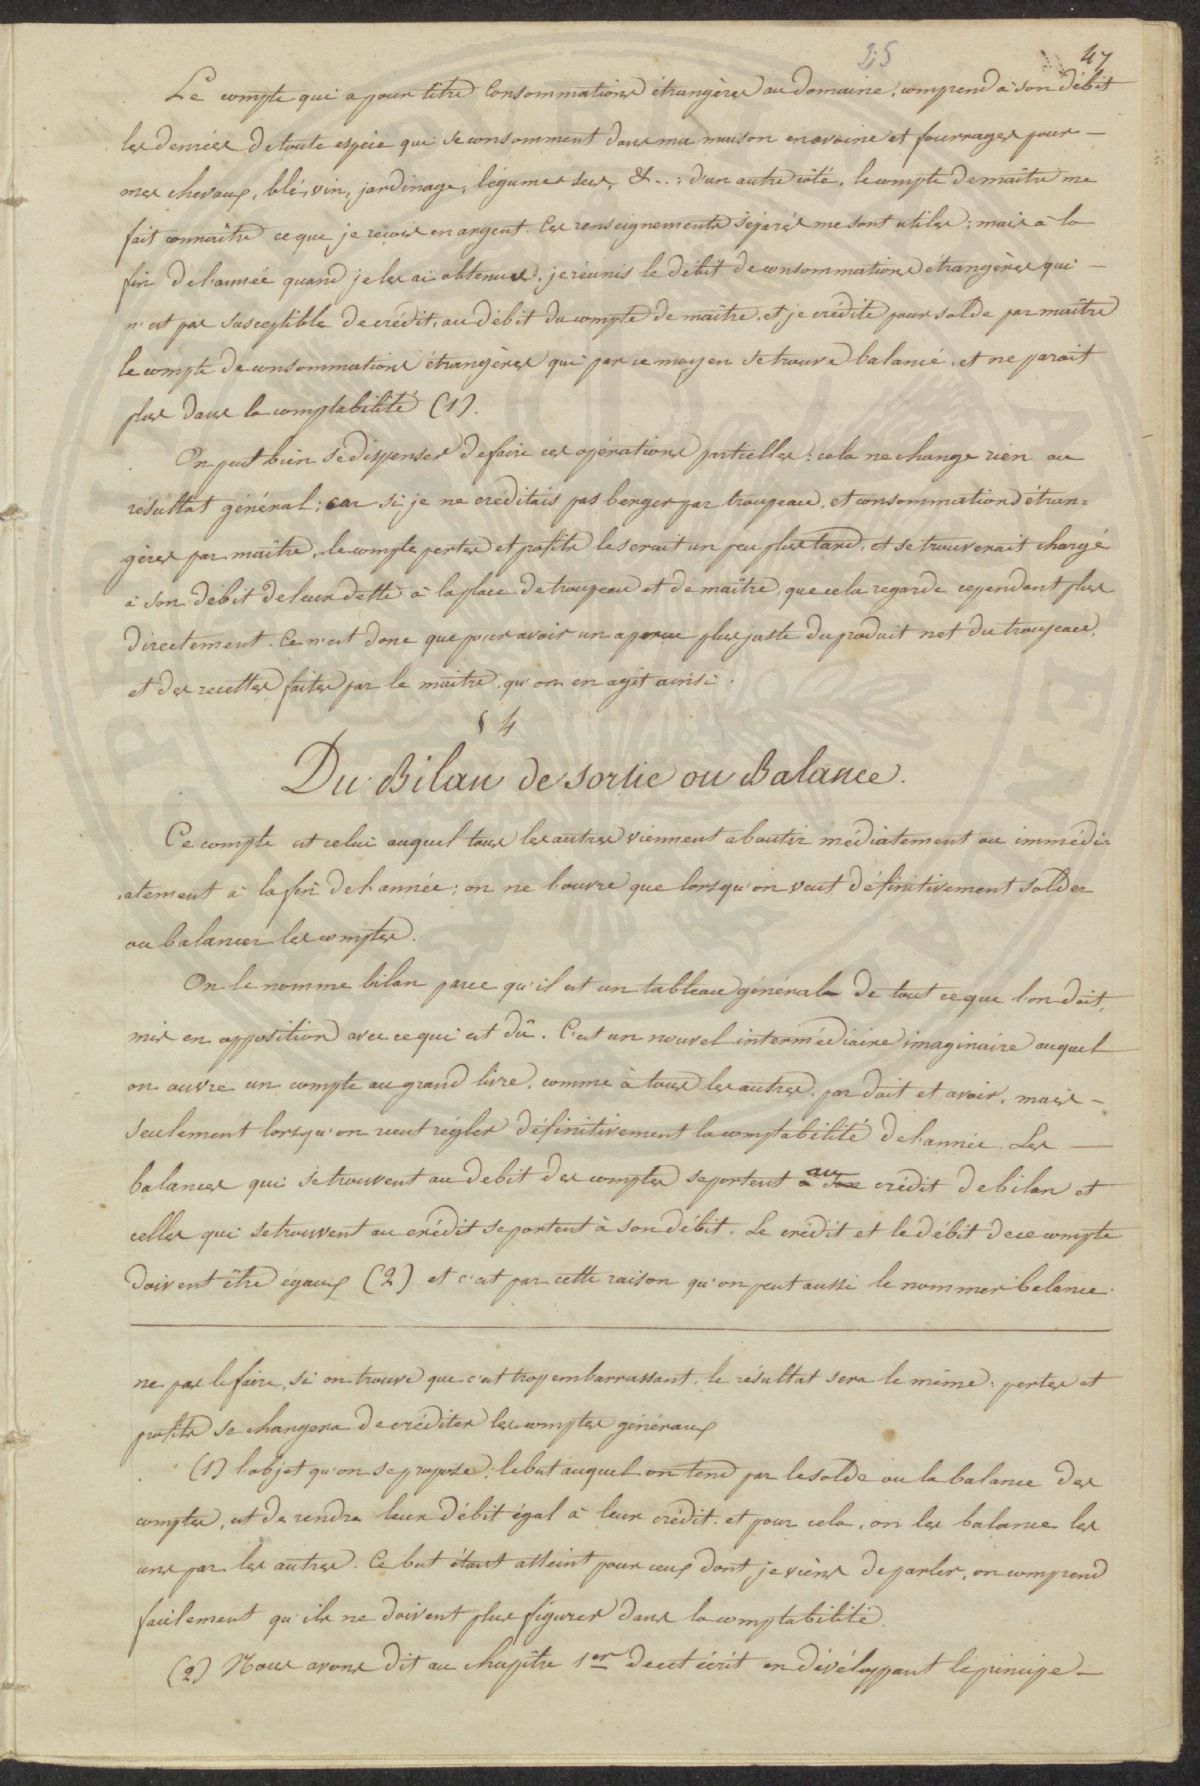 25
47
Le compte qui a pour titre Consommations étrangères au domaine, comprend à son débit
les denrées de toute espèce qui se consomment dans ma maison en avoine et fourrages pour —
mes chevaux, blé, vin, jardinage, légumes secs, &...; d'un autre côté, le compte de maître me
fait connaître ce que je reçois en argent. Ces renseignements séparés me sont utiles; mais à la
fin de l'année quand je les ai obtenus, je réunis le débit de consommations étrangères qui —
n'est pas susceptible de crédit, au débit du compte de maître, et je crédite pour solde par maître
le compte de consommations étrangères qui par ce moyen se trouve balancé, et ne paraît
plus dans la comptabilité (1).
On peut bien se dispenser de faire ces opérations partielles; cela ne change rien au
résultat général; car si je ne créditais pas berger par troupeau, et consommations étran=
gères par maître, le compte pertes et profits le serait un peu plus tard, et se trouverait chargé
à son débit de leur dette à la place de troupeau et de maître, que cela regarde cependant plus
directement. Ce n'est donc que pour avoir un aperçu plus juste du produit net du troupeau,
et des recettes faites par le maître, qu'on en agit ainsi.
§ 4
Du Bilan de sortie ou Balance.
Ce compte est celui auquel tous les autres viennent aboutir médiatement ou immédi=
atement à la fin de l'année; on ne l'ouvre que lorsqu'on veut définitivement solder
ou balancer les comptes.
On le nomme bilan parce qu'il est un tableau général de tout ce que l'on doit,
mis en opposition avec ce qui est dû. C'est un nouvel intermédiaire imaginaire auquel
on ouvre un compte au grand livre, comme à tous les autres, par doit et avoir, mais —
seulement lorsqu'on veut régler définitivement la comptabilité de l'année. Les —
balances qui se trouvent au débit des comptes se portent à son au crédit de bilan et
celles qui se trouvent au crédit se portent à son débit. Le crédit et le débit de ce compte
doivent être égaux (2) et c'est par cette raison qu'on peut aussi le nommer balance.
ne pas le faire, si on trouve que c'est trop embarrassant, le résultat sera le même; pertes et
profits se chargera de créditer les comptes généraux
(1) l'objet qu'on se propose, le but auquel on tend par le solde ou la balance des
comptes, est de rendre leur débit égal à leur crédit, et pour cela, on les balance les
uns par les autres. Ce but étant atteint pour ceux dont je viens de parler, on comprend
facilement qu'ils ne doivent plus figurer dans la comptabilité.
(2) Nous avons dit au chapitre 1er de cet écrit en développant le principe —